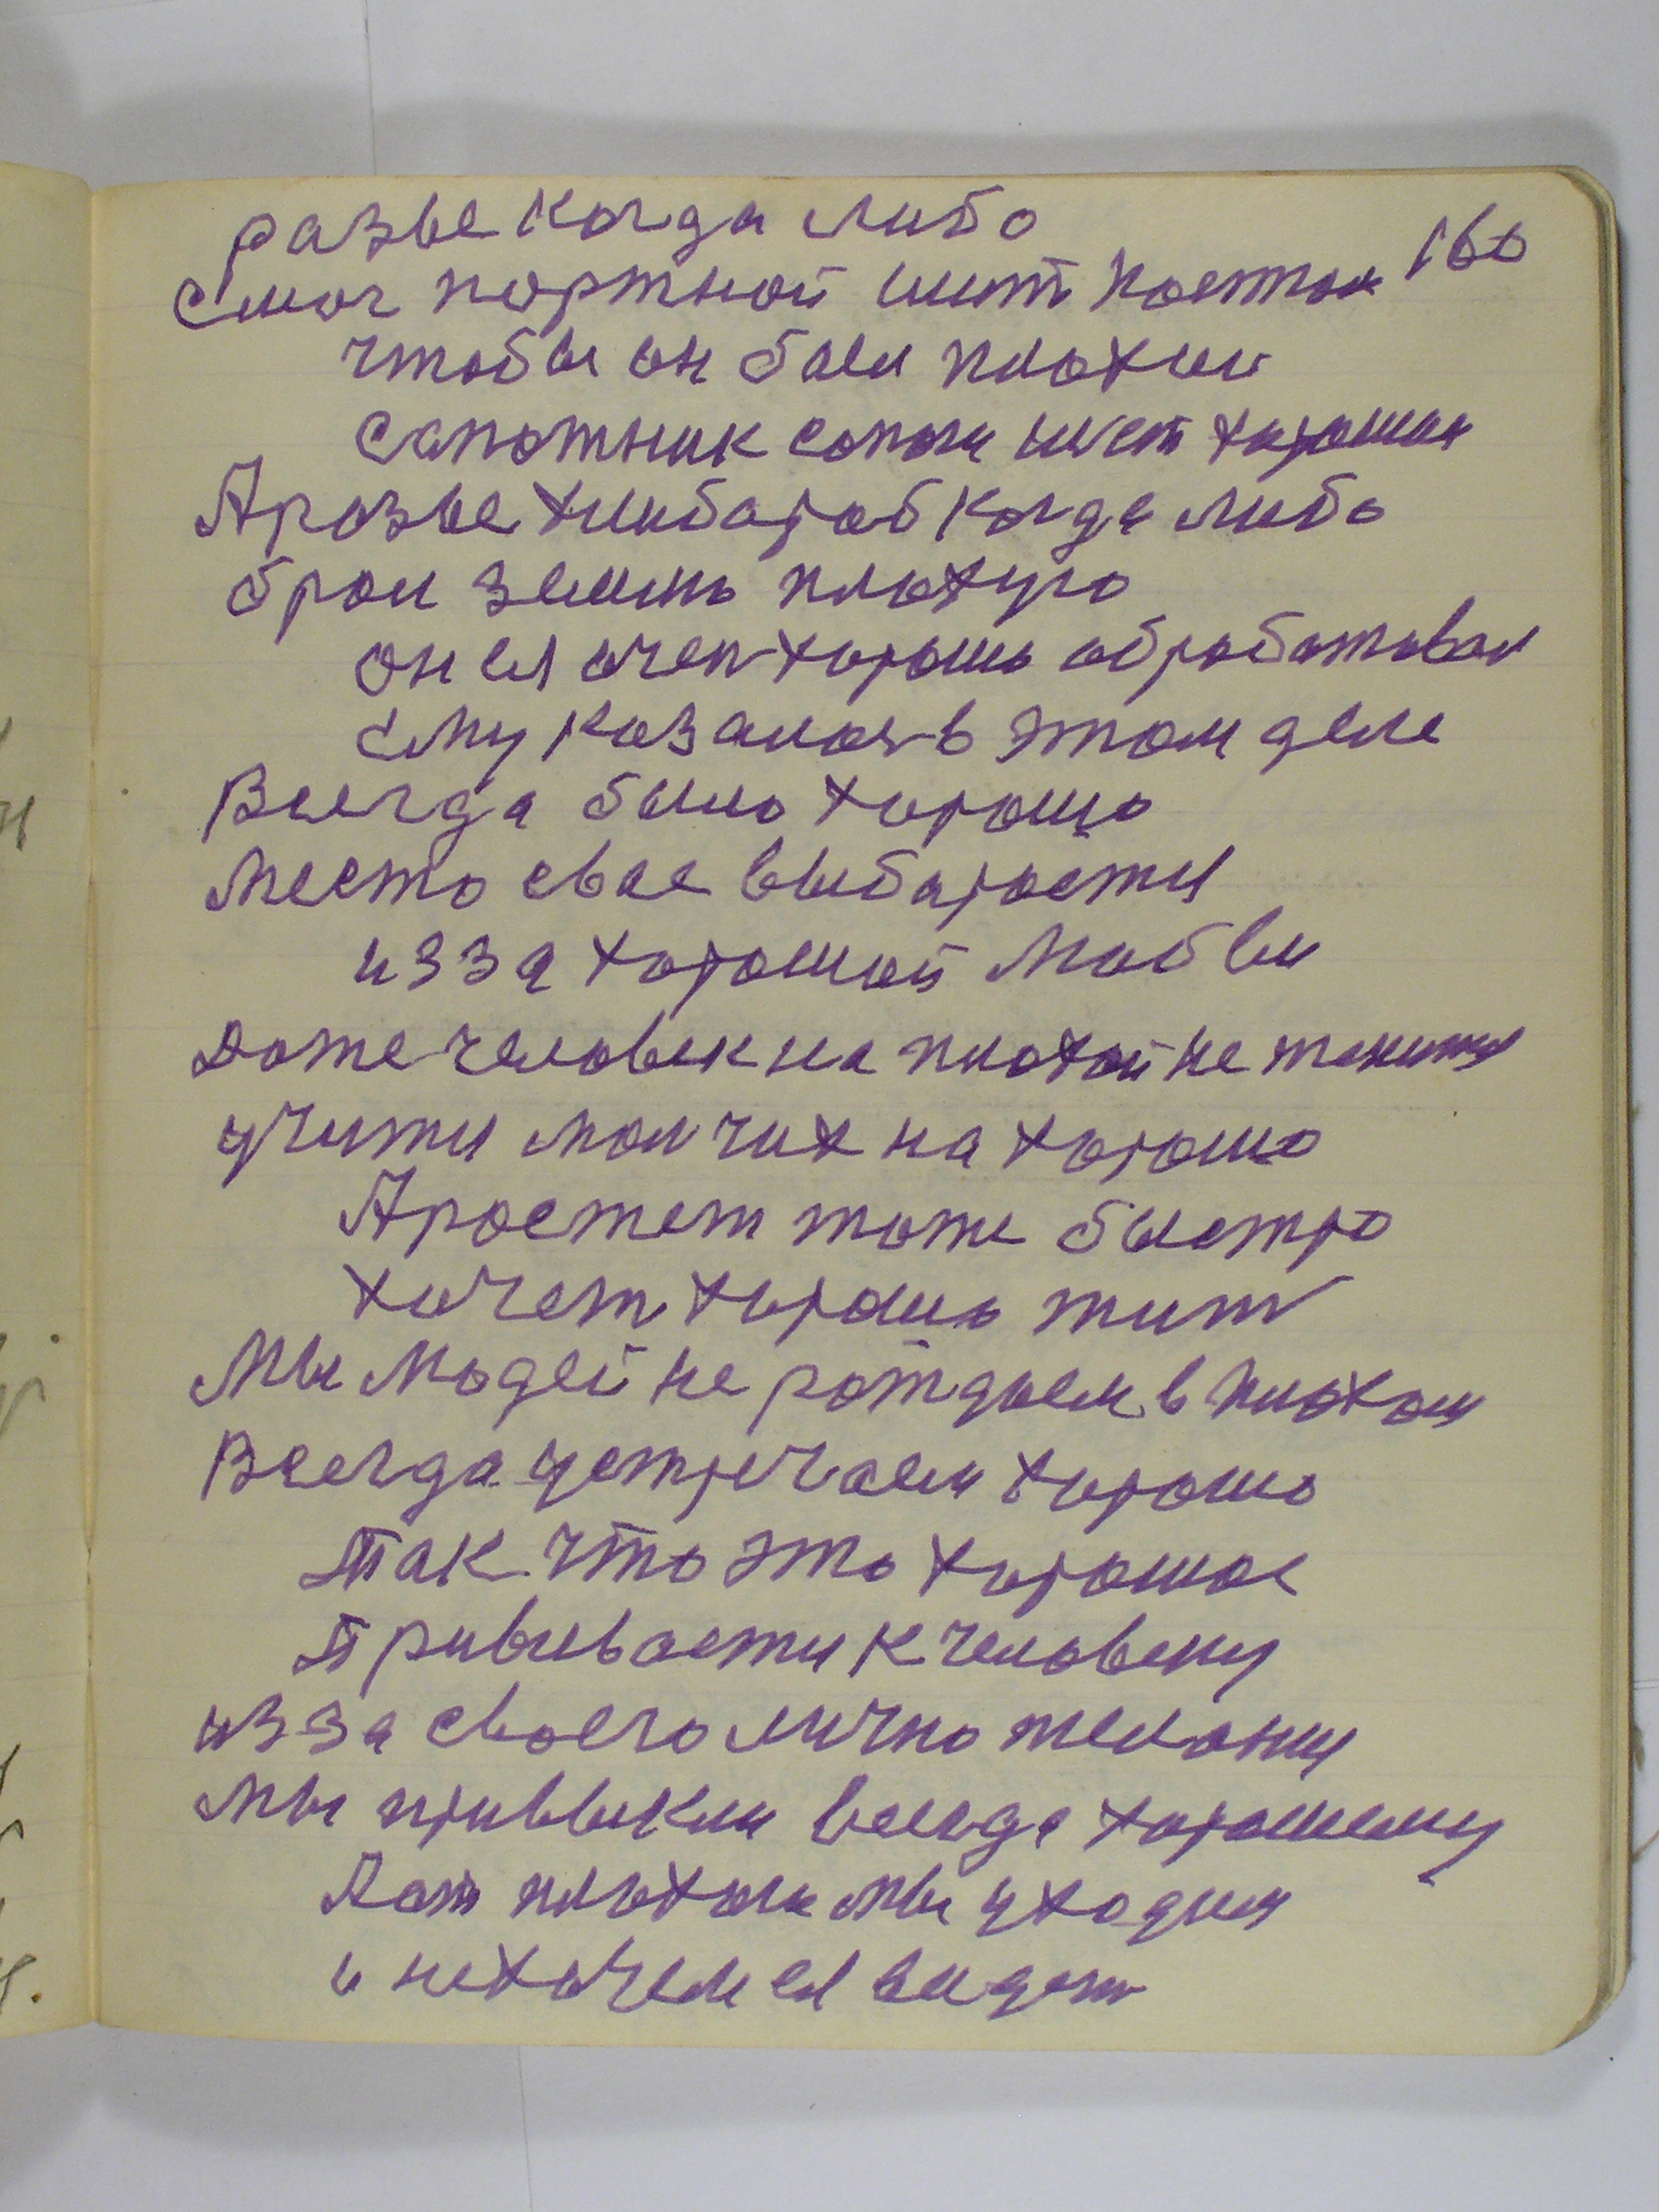 160
разве когда либо
смог портной шит костюм
чтобы он был плохим
сапожник сапоги шьет хорошии
А разве хлибароб когда либо
брал землю плохую
он ея очен хорошо обработовал
ему казалось в этом деле
Всегда было хорошо
Место свое выбараетя
изза хорошой любви
Даже человек на плохой не женитя
учитя малчик на хорошо
А ростет тоже быстро
хочет хорошо жит
Мы людей не рождаем в плохом
Всегда устречаем хорошо
Так что это хорошое
Прививаетя к человеку
изза своего лично желания
Мы привыкли всегда хорошему
А от плохого мы уходим
и нехочем ея видет